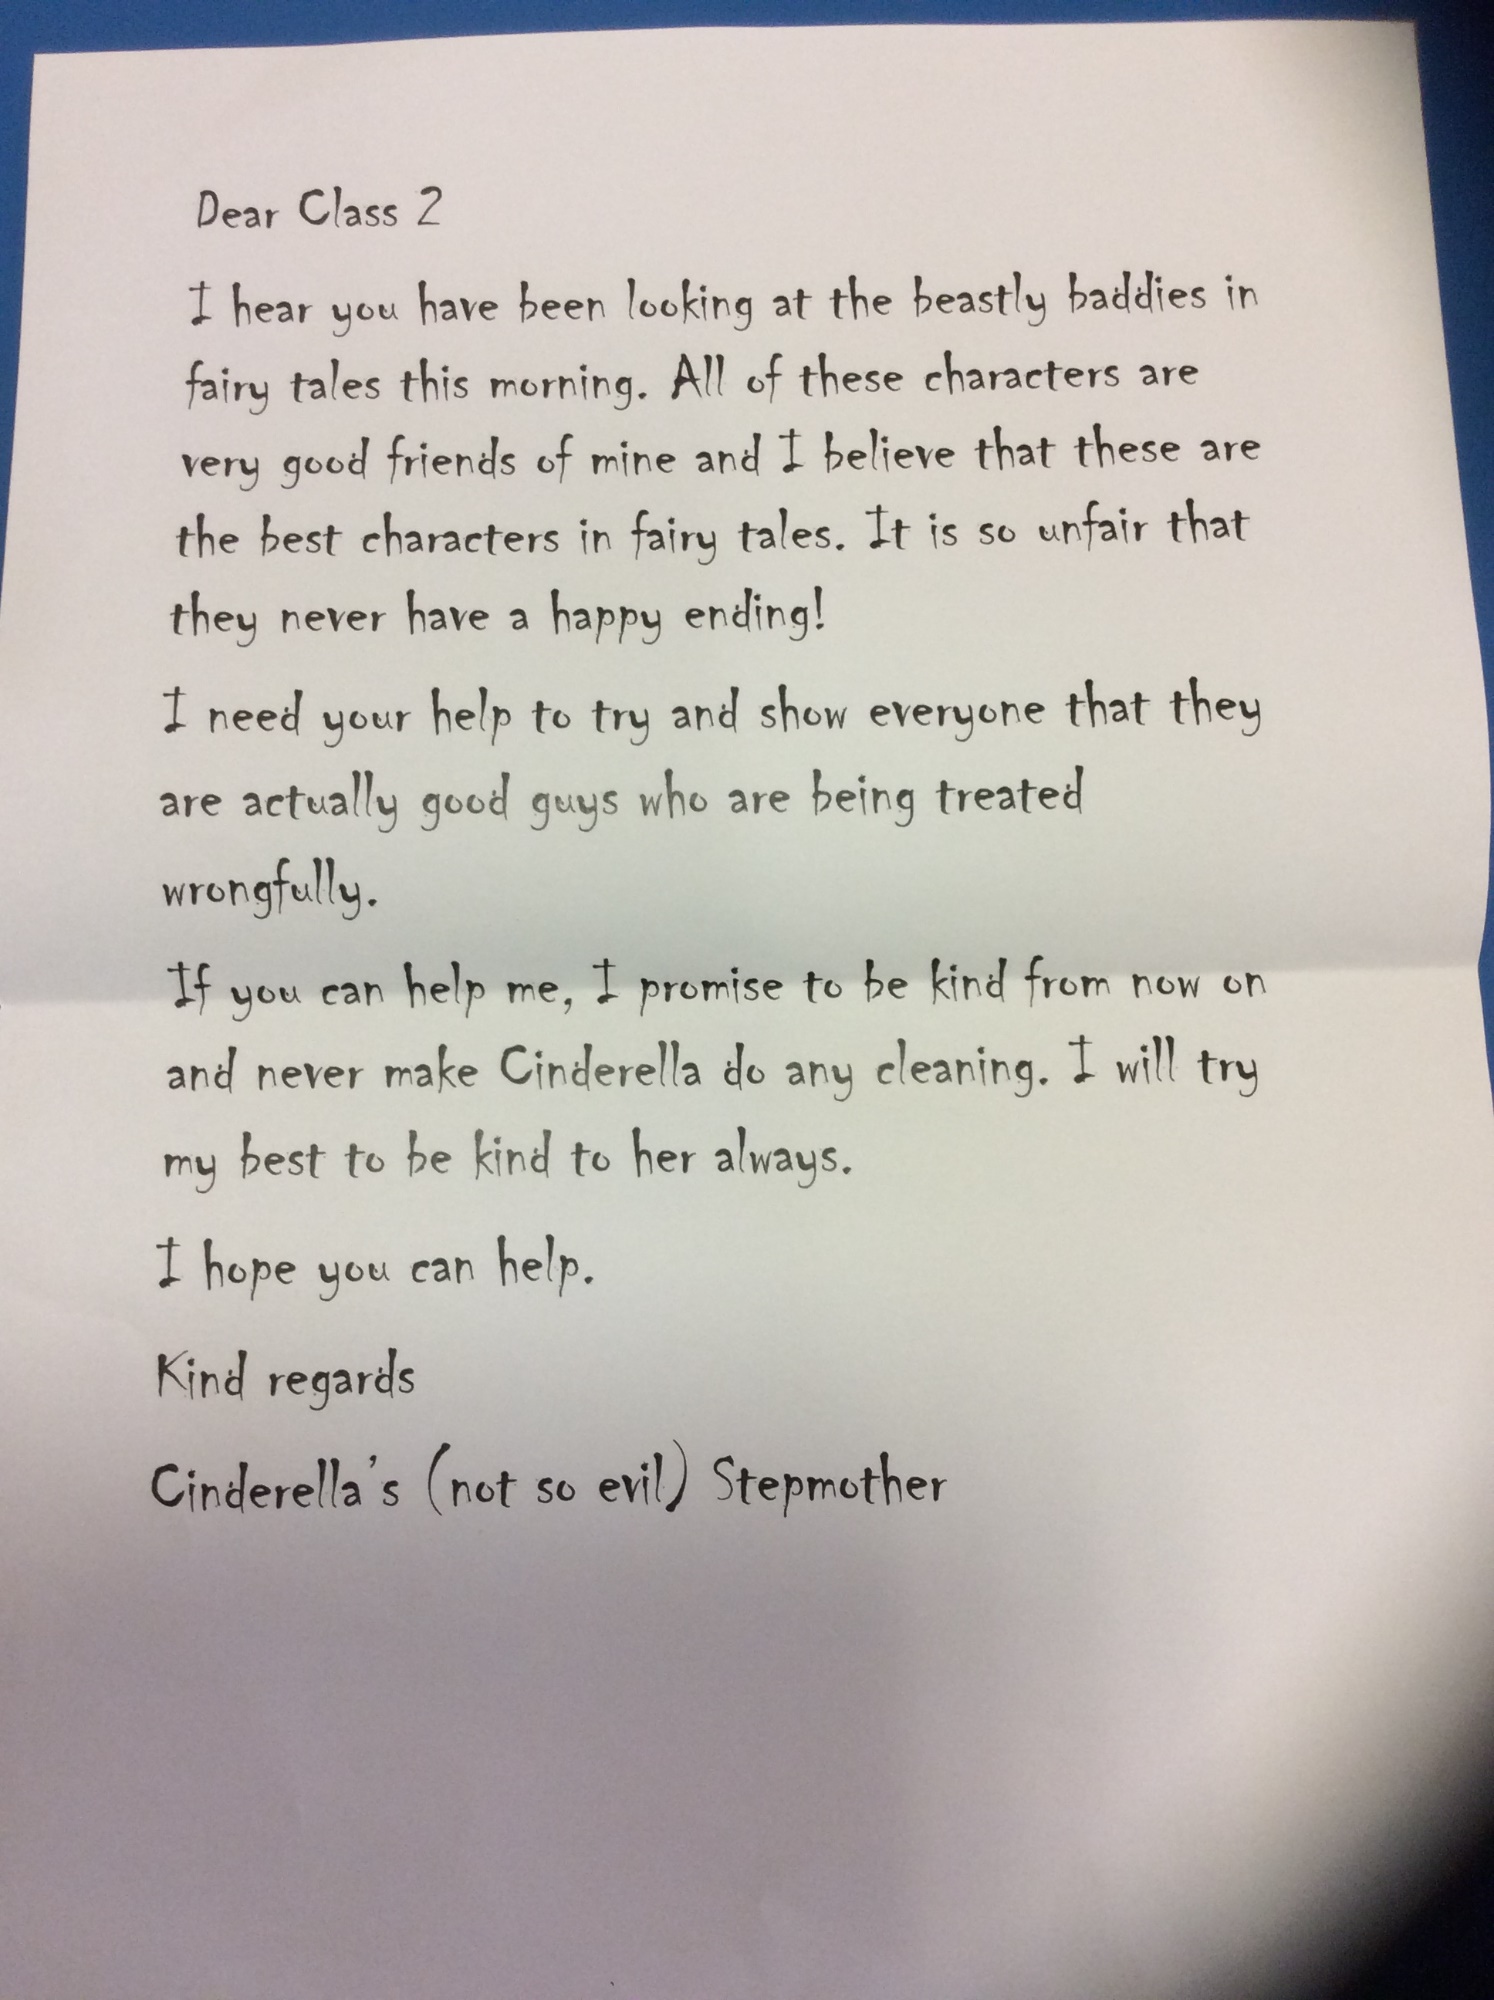 Dear Class 2
I hear you have been looking at the beastly baddies in
fairy tales this morning. All of these characters are
very good friends of mine and I believe that these are
the best characters in fairy tales. It is so unfair that
they never have a happy ending!
I need your help to try and show everyone that they
are actually good guys who are being treated
wrongfully.
If you can help me, I promise to be kind from now on
and never make Cinderella do any cleaning. I will try
my best to be kind to her always.
I hope you can help.
Kind regards
Cinderella's (not so evil) Stepmother